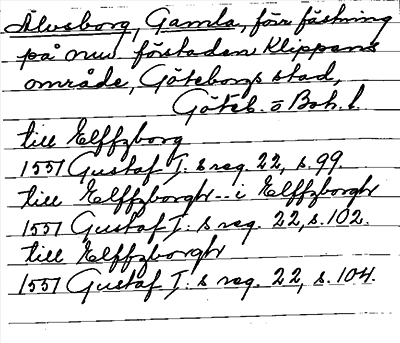 Älvsborg, Gamla, förr fästning
på nuv. förstaden Klippans
område, Göteborgs stad,
Göteb. o Boh. l.
till Elffzborg
1551 Gustaf I:s reg. 22, s. 99.
till Elffzborgh -- i Elffzborgh
1551 Gustaf I:s reg. 22, s. 102.
till Elffzborgh
1551 Gustaf I:s reg. 22, s. 104.